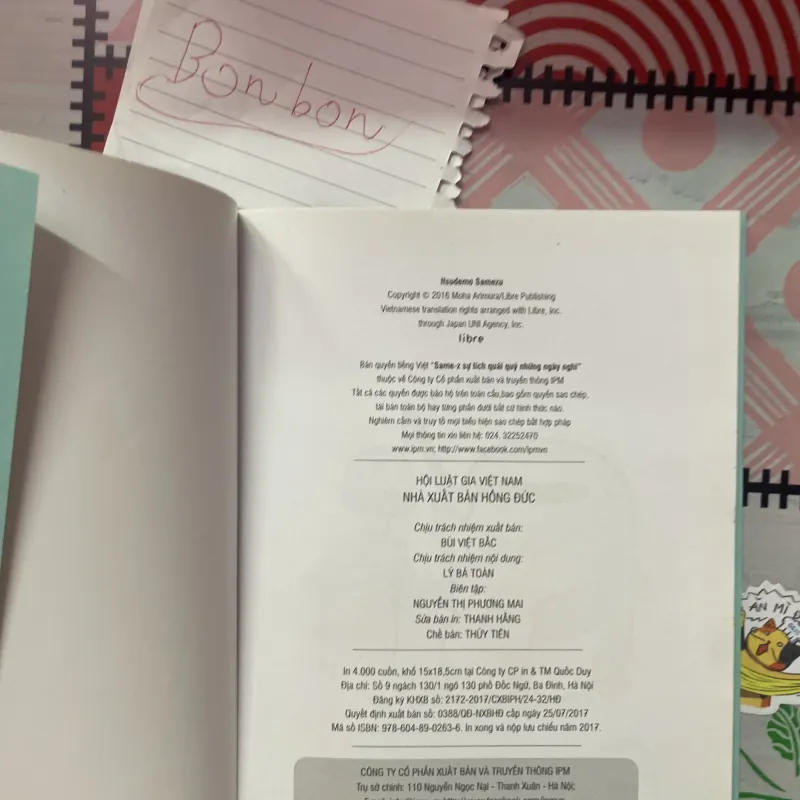 Bon bon
Itsudemo Samezu
Copyright © 2016 Moha Arimura/Libre Publishing
Vietnamese translation rights arranged with Libre, Inc.
through Japan UNI Agency, Inc.
libre
Bản quyền tiếng Việt "Same-z sự tích quái quỷ những ngày nghỉ"
thuộc về Công ty Cổ phần xuất bản và truyền thông IPM
Tất cả các quyền được bảo hộ trên toàn cầu,bao gồm quyền sao chép,
tái bản toàn bộ hay từng phần dưới bất cứ hình thức nào.
Nghiêm cấm và truy tố mọi biểu hiện sao chép bất hợp pháp
Mọi thông tin xin liên hệ: 024. 32252470
www.ipm.vn; http://www.facebook.com/ipmvn
HỘI LUẬT GIA VIỆT NAM
NHÀ XUẤT BẢN HỒNG ĐỨC
Chịu trách nhiệm xuất bản:
BÙI VIỆT BẮC
Chịu trách nhiệm nội dung:
LÝ BÁ TOÀN
Biên tập:
NGUYỄN THỊ PHƯƠNG MAI
Sửa bản in: THANH HẰNG
Chế bản: THỦY TIÊN
In 4.000 cuốn, khổ 15x18,5cm tại Công ty CP in & TM Quốc Duy
Địa chỉ: Số 9 ngách 130/1 ngõ 130 phố Đốc Ngữ, Ba Đình, Hà Nội
Đăng ký KHXB số: 2172-2017/CXBIPH/24-32/HĐ
Quyết định xuất bản số: 0388/QĐ-NXBHĐ cấp ngày 25/07/2017
Mã số ISBN: 978-604-89-0263-6. In xong và nộp lưu chiểu năm 2017.
CÔNG TY CỔ PHẦN XUẤT BẢN VÀ TRUYỀN THÔNG IPM
Trụ sở chính: 110 Nguyễn Ngọc Nại - Thanh Xuân - Hà Nội;
ĂN MÌ